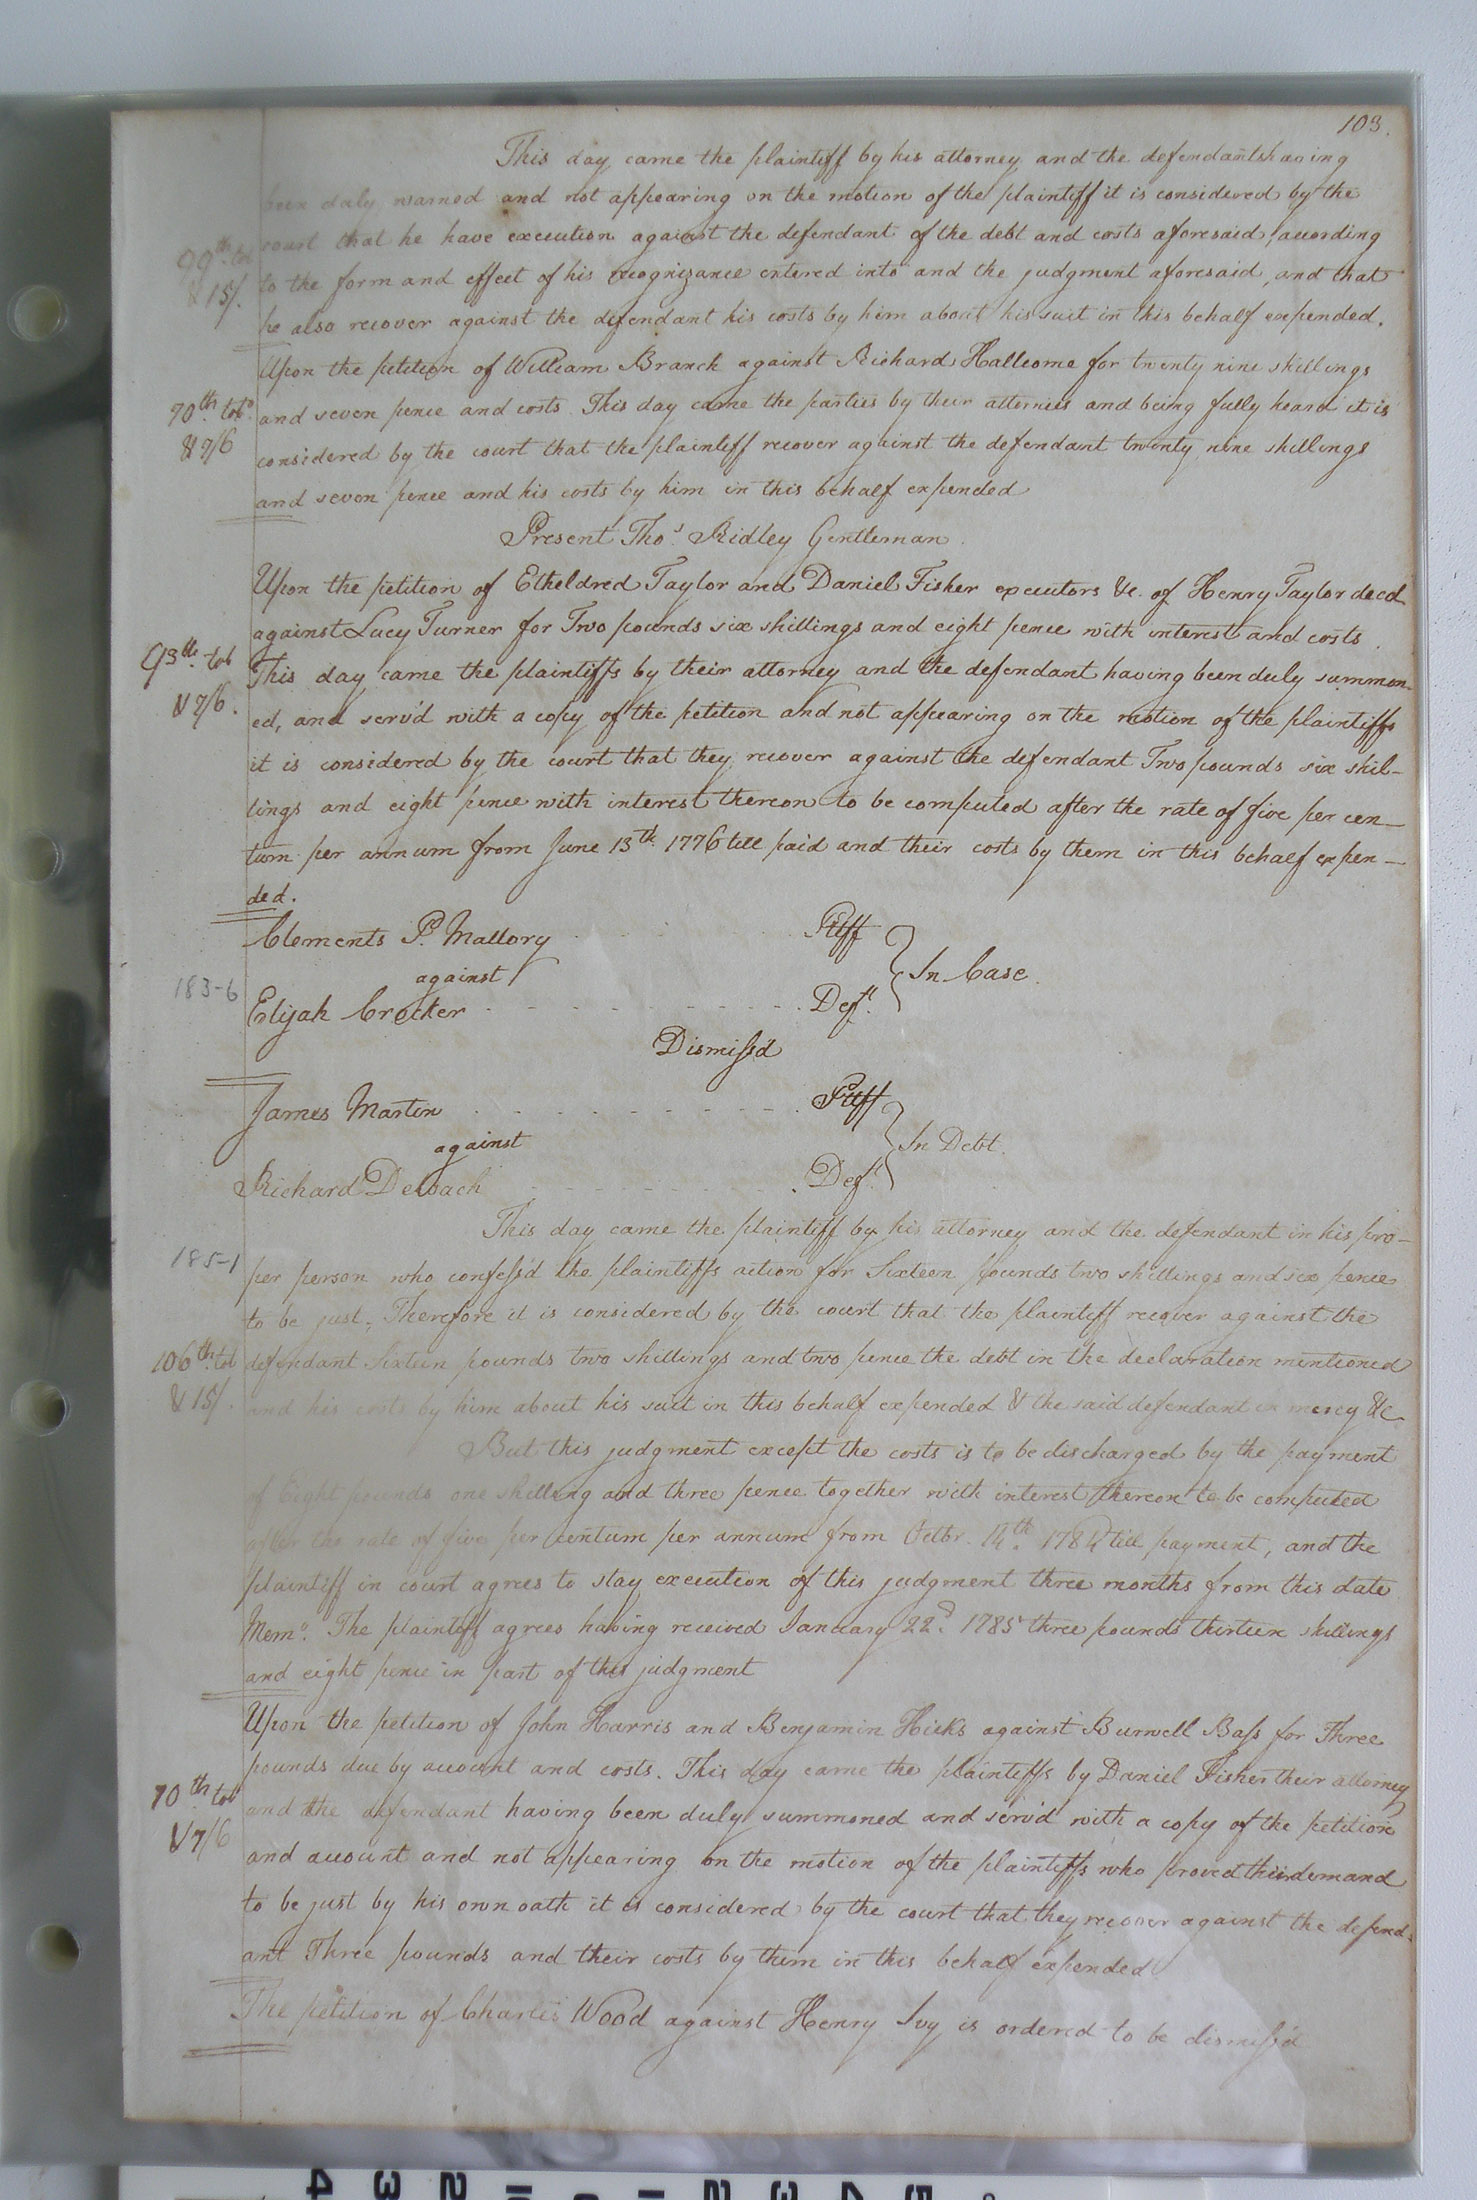 103.
This day came the plaintiff by his attorney and the defendants having
been duly warned and not appearing on the motion of the plaintiff it is considered by the
court that he have execution against the defendant of the debt and costs aforesaid, according
99th. tob
& 15/.
to the form and effect of his recognizance entered into and the judgment aforesaid, and that
he also recover against the defendant his costs by him about his suit in this behalf expended.
Upon the petition of William Branch against Richard Hallcome for twenty nine shillings
70th tobo.
& 7/6
and seven pence and costs. This day came the parties by their attornies and being fully heard it is
considered by the court that the plaintiff recover against the defendant twenty nine shillings
and seven pence and his costs by him in this behalf expended
Present Thos. Ridley Gentleman.
Upon the petition of Etheldred Taylor and Daniel Fisher executors &c. of Henry Taylor decd
against Lucy Turner for Two pounds six shillings and eight pence with interest and costs.
93th. tob
& 7/6.
This day came the plaintiffs by their attorney and the defendant having been duly summon-
ed, and serv'd with a copy of the petition and not appearing on the motion of the plaintiffs
it is considered by the court that they recover against the defendant Two pounds six shil-
lings and eight pence with interest thereon to be computed after the rate of five per cen-
tum per annum from June 13th. 1776 till paid and their costs by them in this behalf expen-
ded.
Clements P. Mallory Pltff
against
In Case.
183-6
Elijah Crocker Deft.
Dismiss'd
James Martin Pltff
against
In Debt.
Richard Deloach Deft.
This day came the plaintiff by his attorney and the defendant in his pro-
185-1
per person who confess'd the plaintiffs action for Sixteen pounds two shillings and six pence
to be just, Therefore it is considered by the court that the plaintiff recover against the
106th tob
& 15/.
defendant Sixteen pounds two shillings and two pence the debt in the declaration mentioned
and his costs by him about his suit in this behalf expended & the said defendant in mercy &c
But this judgment except the costs is to be discharged by the payment
of Eight pounds one shilling and three pence together with interest thereon to be computed
after the rate of five per centum per annum from Octbr. 14th. 1784 till payment, and the
plaintiff in court agrees to stay execution of this judgment three months from this date
Memo. The plaintiff agrees having received January 22d. 1785 three pounds thirteen shillings
and eight pence in part of this judgment
Upon the petition of John Harris and Benjamin Hicks against Burwell Bass for Three
pounds due by account and costs. This day came the plaintiffs by Daniel Fisher their attorney
70th tob
& 7/6
and the defendant having been duly summoned and serv'd with a copy of the petition
and account and not appearing on the motion of the plaintiffs who proved their demand
to be just by his own oath it is considered by the court that they recover against the defend-
ant Three pounds and their costs by them in this behalf expended
The petition of Charles Wood against Henry Ivy is ordered to be dismiss'd